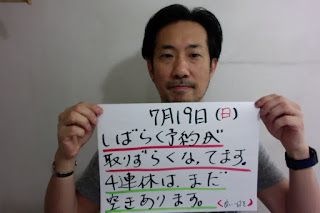 7月19日(日)
しばらく予約が
取りずらくなってます。
4連休は、まだ
空きあります。